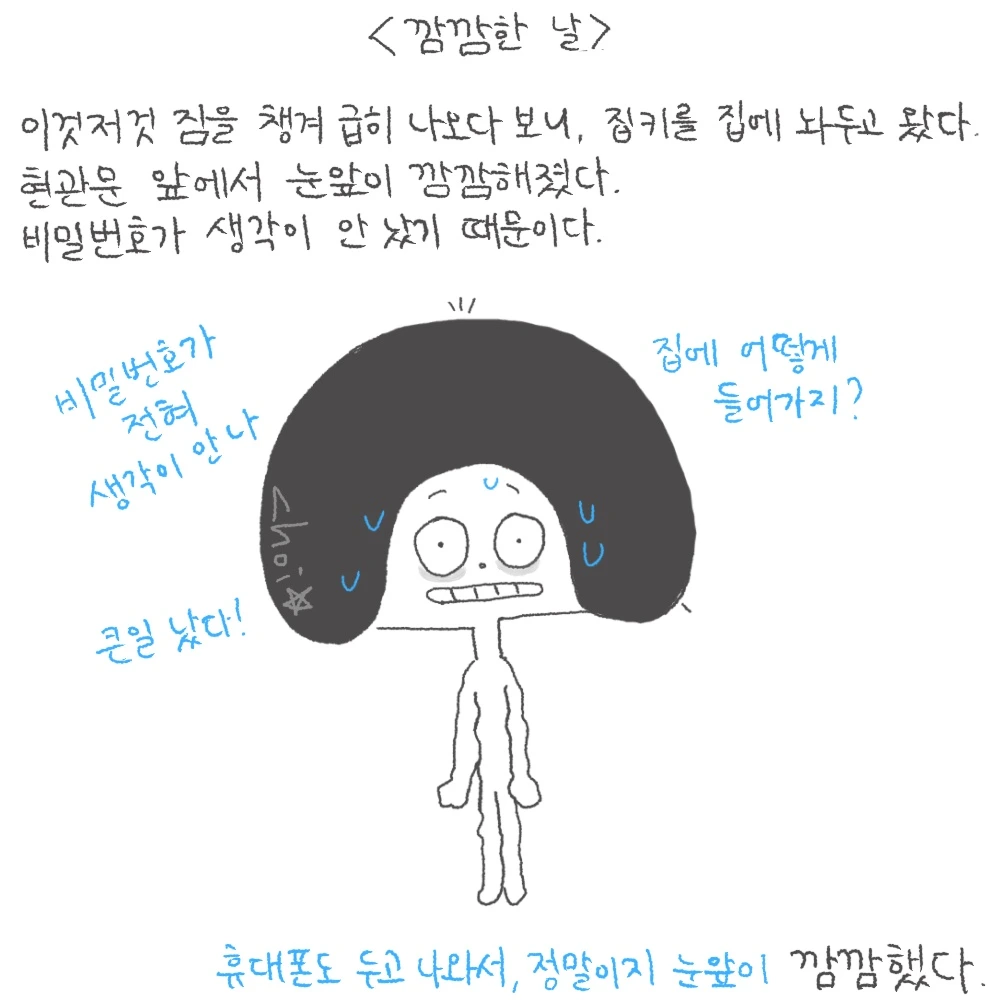 <깜깜한 날>
이것저것 짐을 챙겨 급히 나오다 보니, 집키를 집에 놔두고 왔다.
현관문 앞에서 눈앞이 깜깜해졌다.
비밀번호가 생각이 안 났기 때문이다.
비밀번호가
전혀
생각이 안 나
집에 어떻게
들어가지?
큰일 났다!
휴대폰도 두고 나와서, 정말이지 눈앞이 깜깜했다.